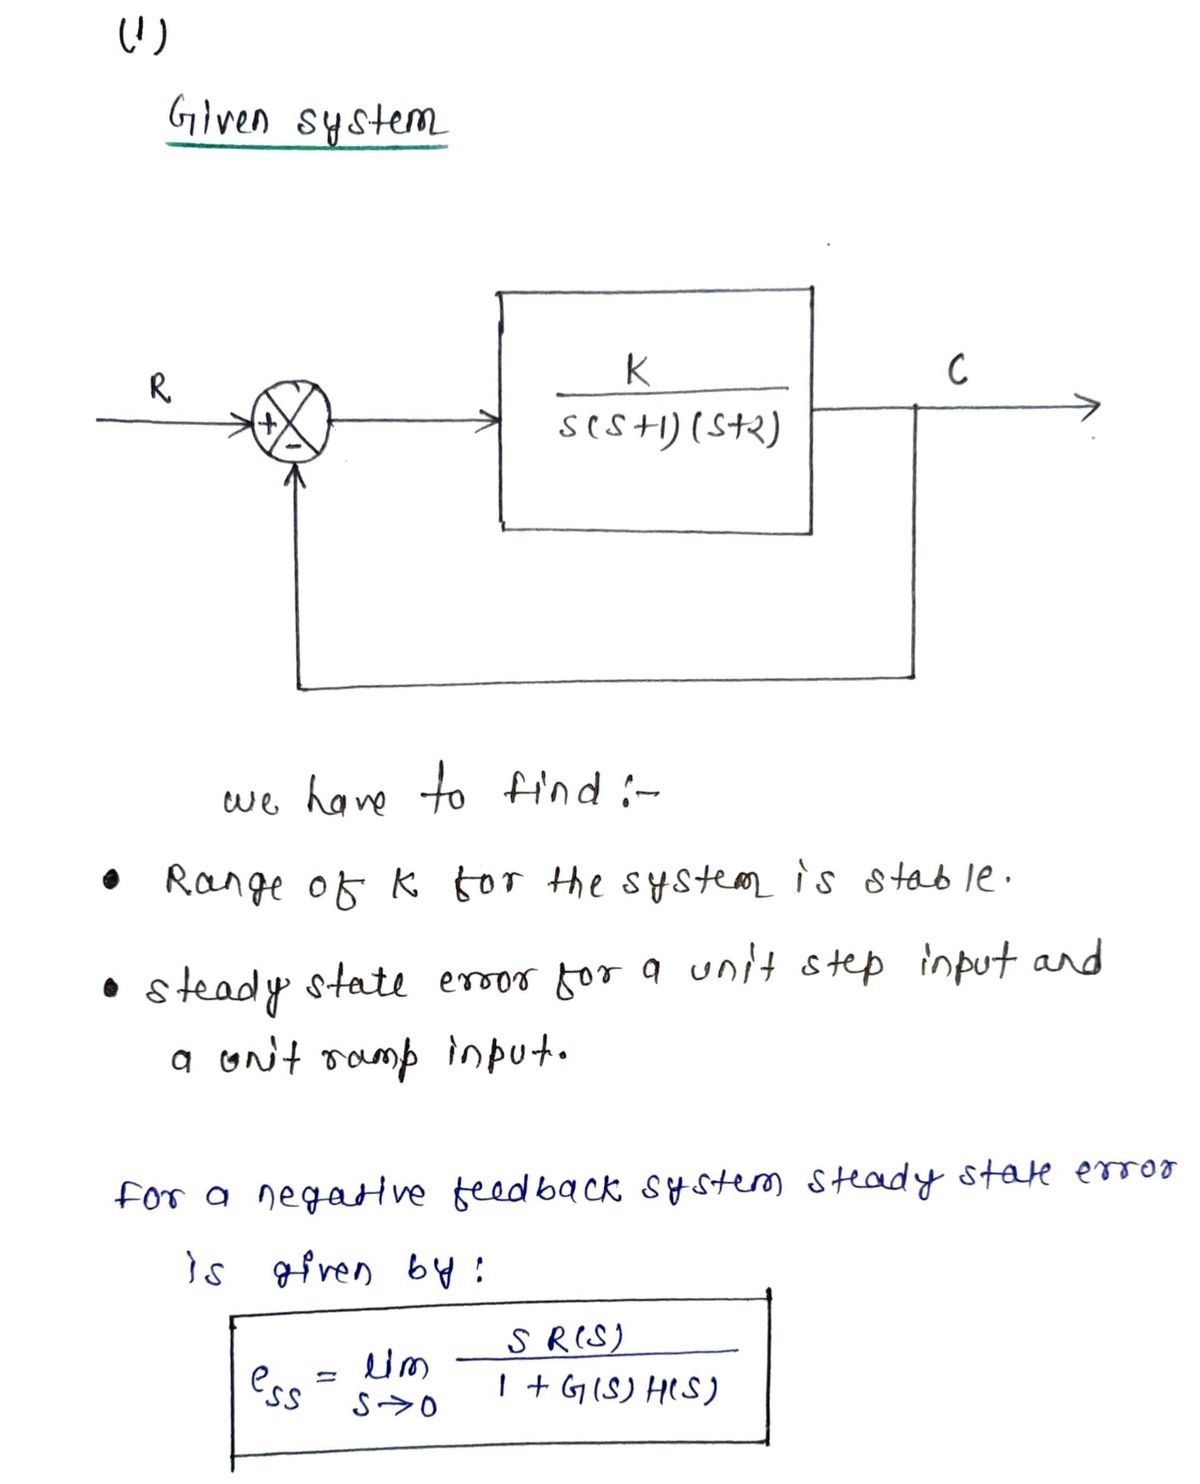 (1)
Given system
R
+
-
K
S(S+1)(S+2)
C
we have to find :-
• Range of K for the system is stable.
• steady state error for a unit step input and
a unit ramp input.
For a negative feedback system steady state error
is given by :
e_ss = lim S→0 S R(S) / 1 + G(S) H(S)